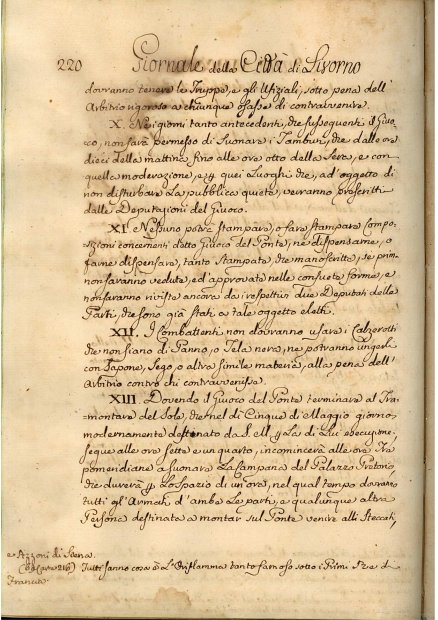 220 Giornale della Città di Livorno
dovranno tenere le Truppe, e gli Ufiziali, sotto pena dell'
Arbitrio rigoroso a chiunque osasse di contravvenire.
X. Nei giorni tanto antecedenti, che susseguenti il Giuo-
co, non sarà permesso di suonare i Tamburi, che dalle ore
dieci della mattina fino alle ore otto della Sera, e con
quella moderazione, e quei Luoghi che, ad'oggetto di
non disturbare la pubblica quiete, verranno prescritti
dalle Deputazioni del Giuoco.
XI. Nessuno potrà stampare, o fare stampare Compo-
sizioni concernenti d.tto Giuoco del Ponte, nè dispensarne, o
farne dispensare, tanto stampate che manoscritte, se prima
non saranno vedute, ed'approvate nelle consuete forme, e
non saranno riviste ancora da i respettivi due Deputati delle
Parti, che sono già stati a tale oggetto eletti.
XII. I Combattenti non dovranno usare i Calzerotti
che non siano di Panno, o Tela nera, ne potranno ungerli
con Sapone, Sego, o altra simile materia, alla pena dell'
Arbitrio contro chi contravvenisse.
XIII Dovendo il Giuoco del Ponte terminare al Tra-
montare del Sole, che nel dì Cinque di Maggio giorno
modernamente destinato da S. M. p la di Lui esecuzione,
segue alle ore sette e un quarto, incomincerà alle ore
pomeridiane a suonare la Campana del Palazzo Pretorio,
che durerà p lo spazio di un'ora, nel qual tempo dovranno
tutti gl'Armati d'ambe le parti, e qualunque altra
Persona destinata a montar sul Ponte venire alli steccati,
e Azzioni di Siena.
(6) (Carte 216) Tutti sanno cosa è L'Oriflamma tanto famoso sotto i Primi Rè di
Francia.